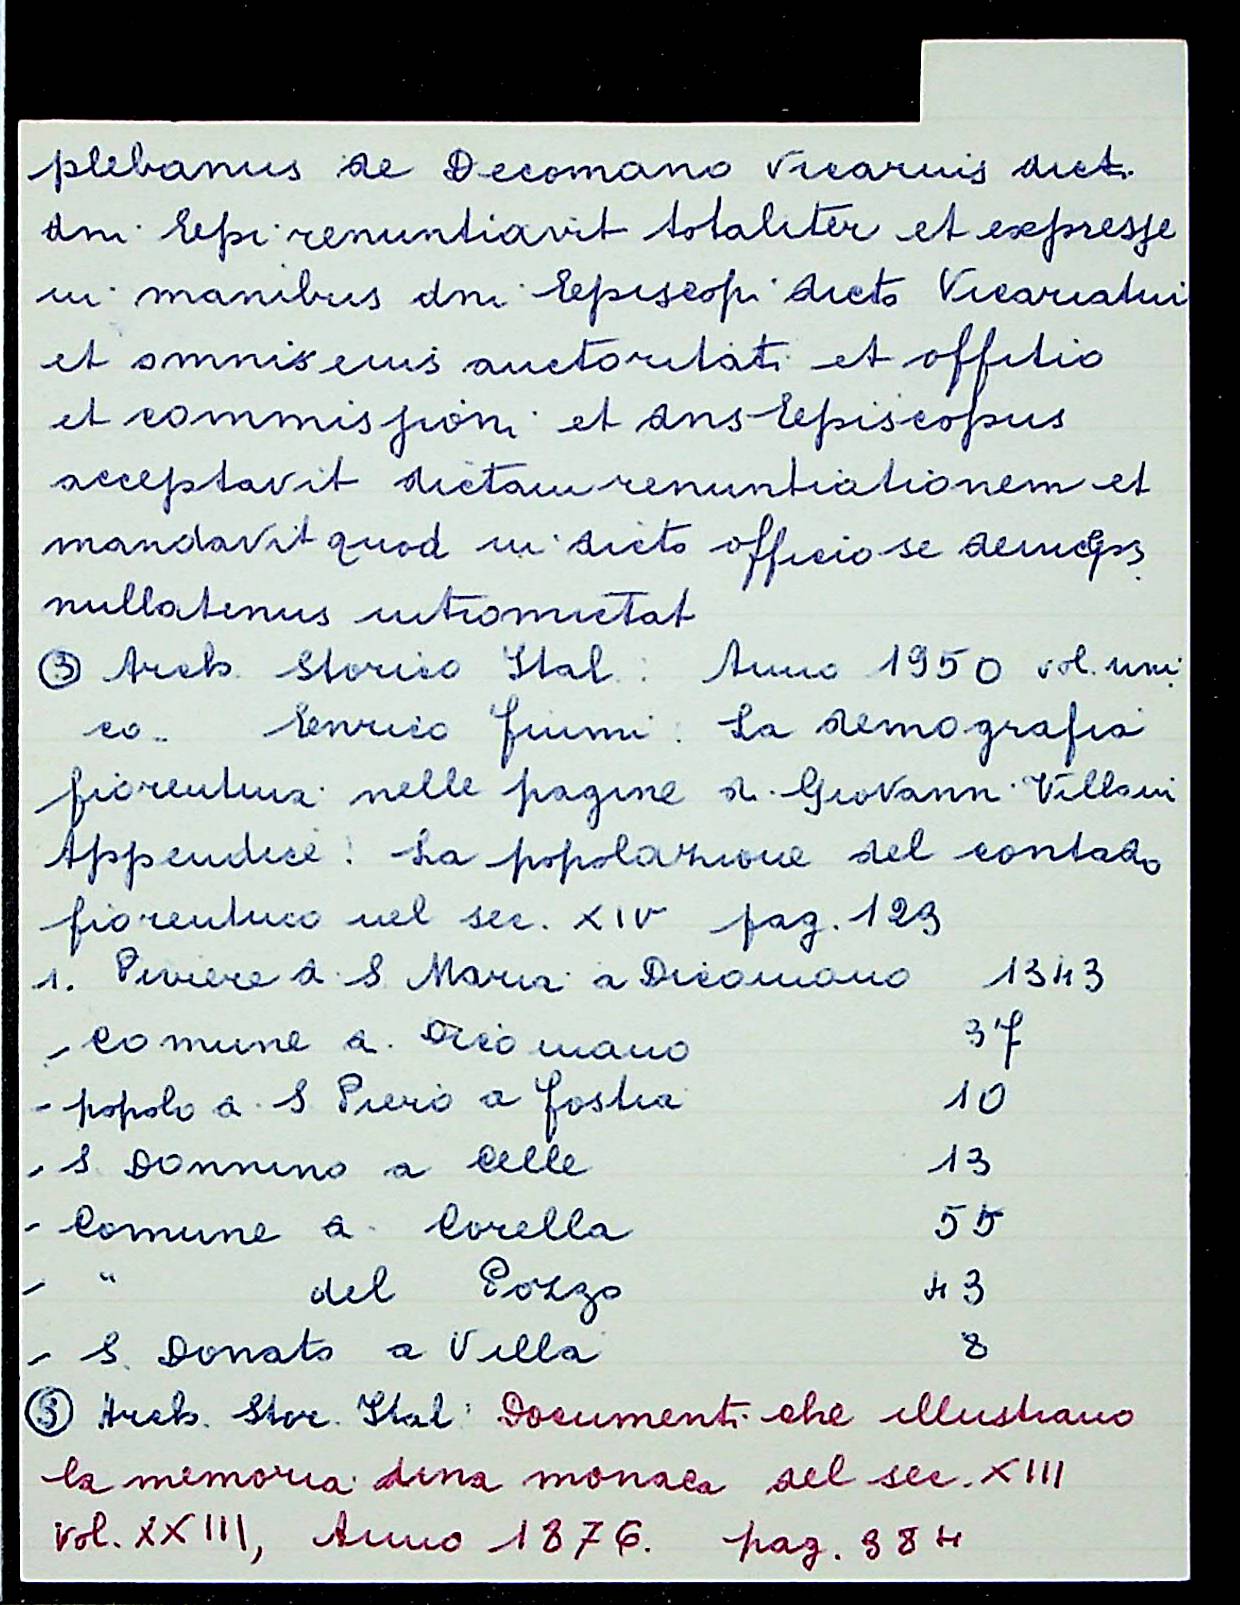 plebanus de Decomano Vicarius dicti
dni Eepi renuntiavit totaliter et expresse
in manibus dni Eepiscopi dicto Vicariatui
et omnis eius auctoritati et offitio
et commissioni et dns Eepiscopus
acceptavit dictam renuntiationem et
mandavit quod in dicto officio se deinceps
nullatenus intromictat
③ Arch. Storico Ital.: Anno 1950 vol. uni
co. Enrico Fiumi: La demografia
fiorentina nelle pagine di Giovanni Villani
Appendice: La popolazione del contado
fiorentino nel sec. XIV pag. 123
1. Piviere di S Maria a Dicomano 1343
- Comune di Dicomano 37
- popolo di S Piero a Fostia 10
- S. Donnino a Celle 13
- Comune di Corella 55
- " del Pozzo 43
- S. Donato a Villa 8
⑤ Arch. Stor. Ital: Documenti che illustrano
la memoria d'una monaca del sec. XIII
vol. XXIII, Anno 1876. pag. 384